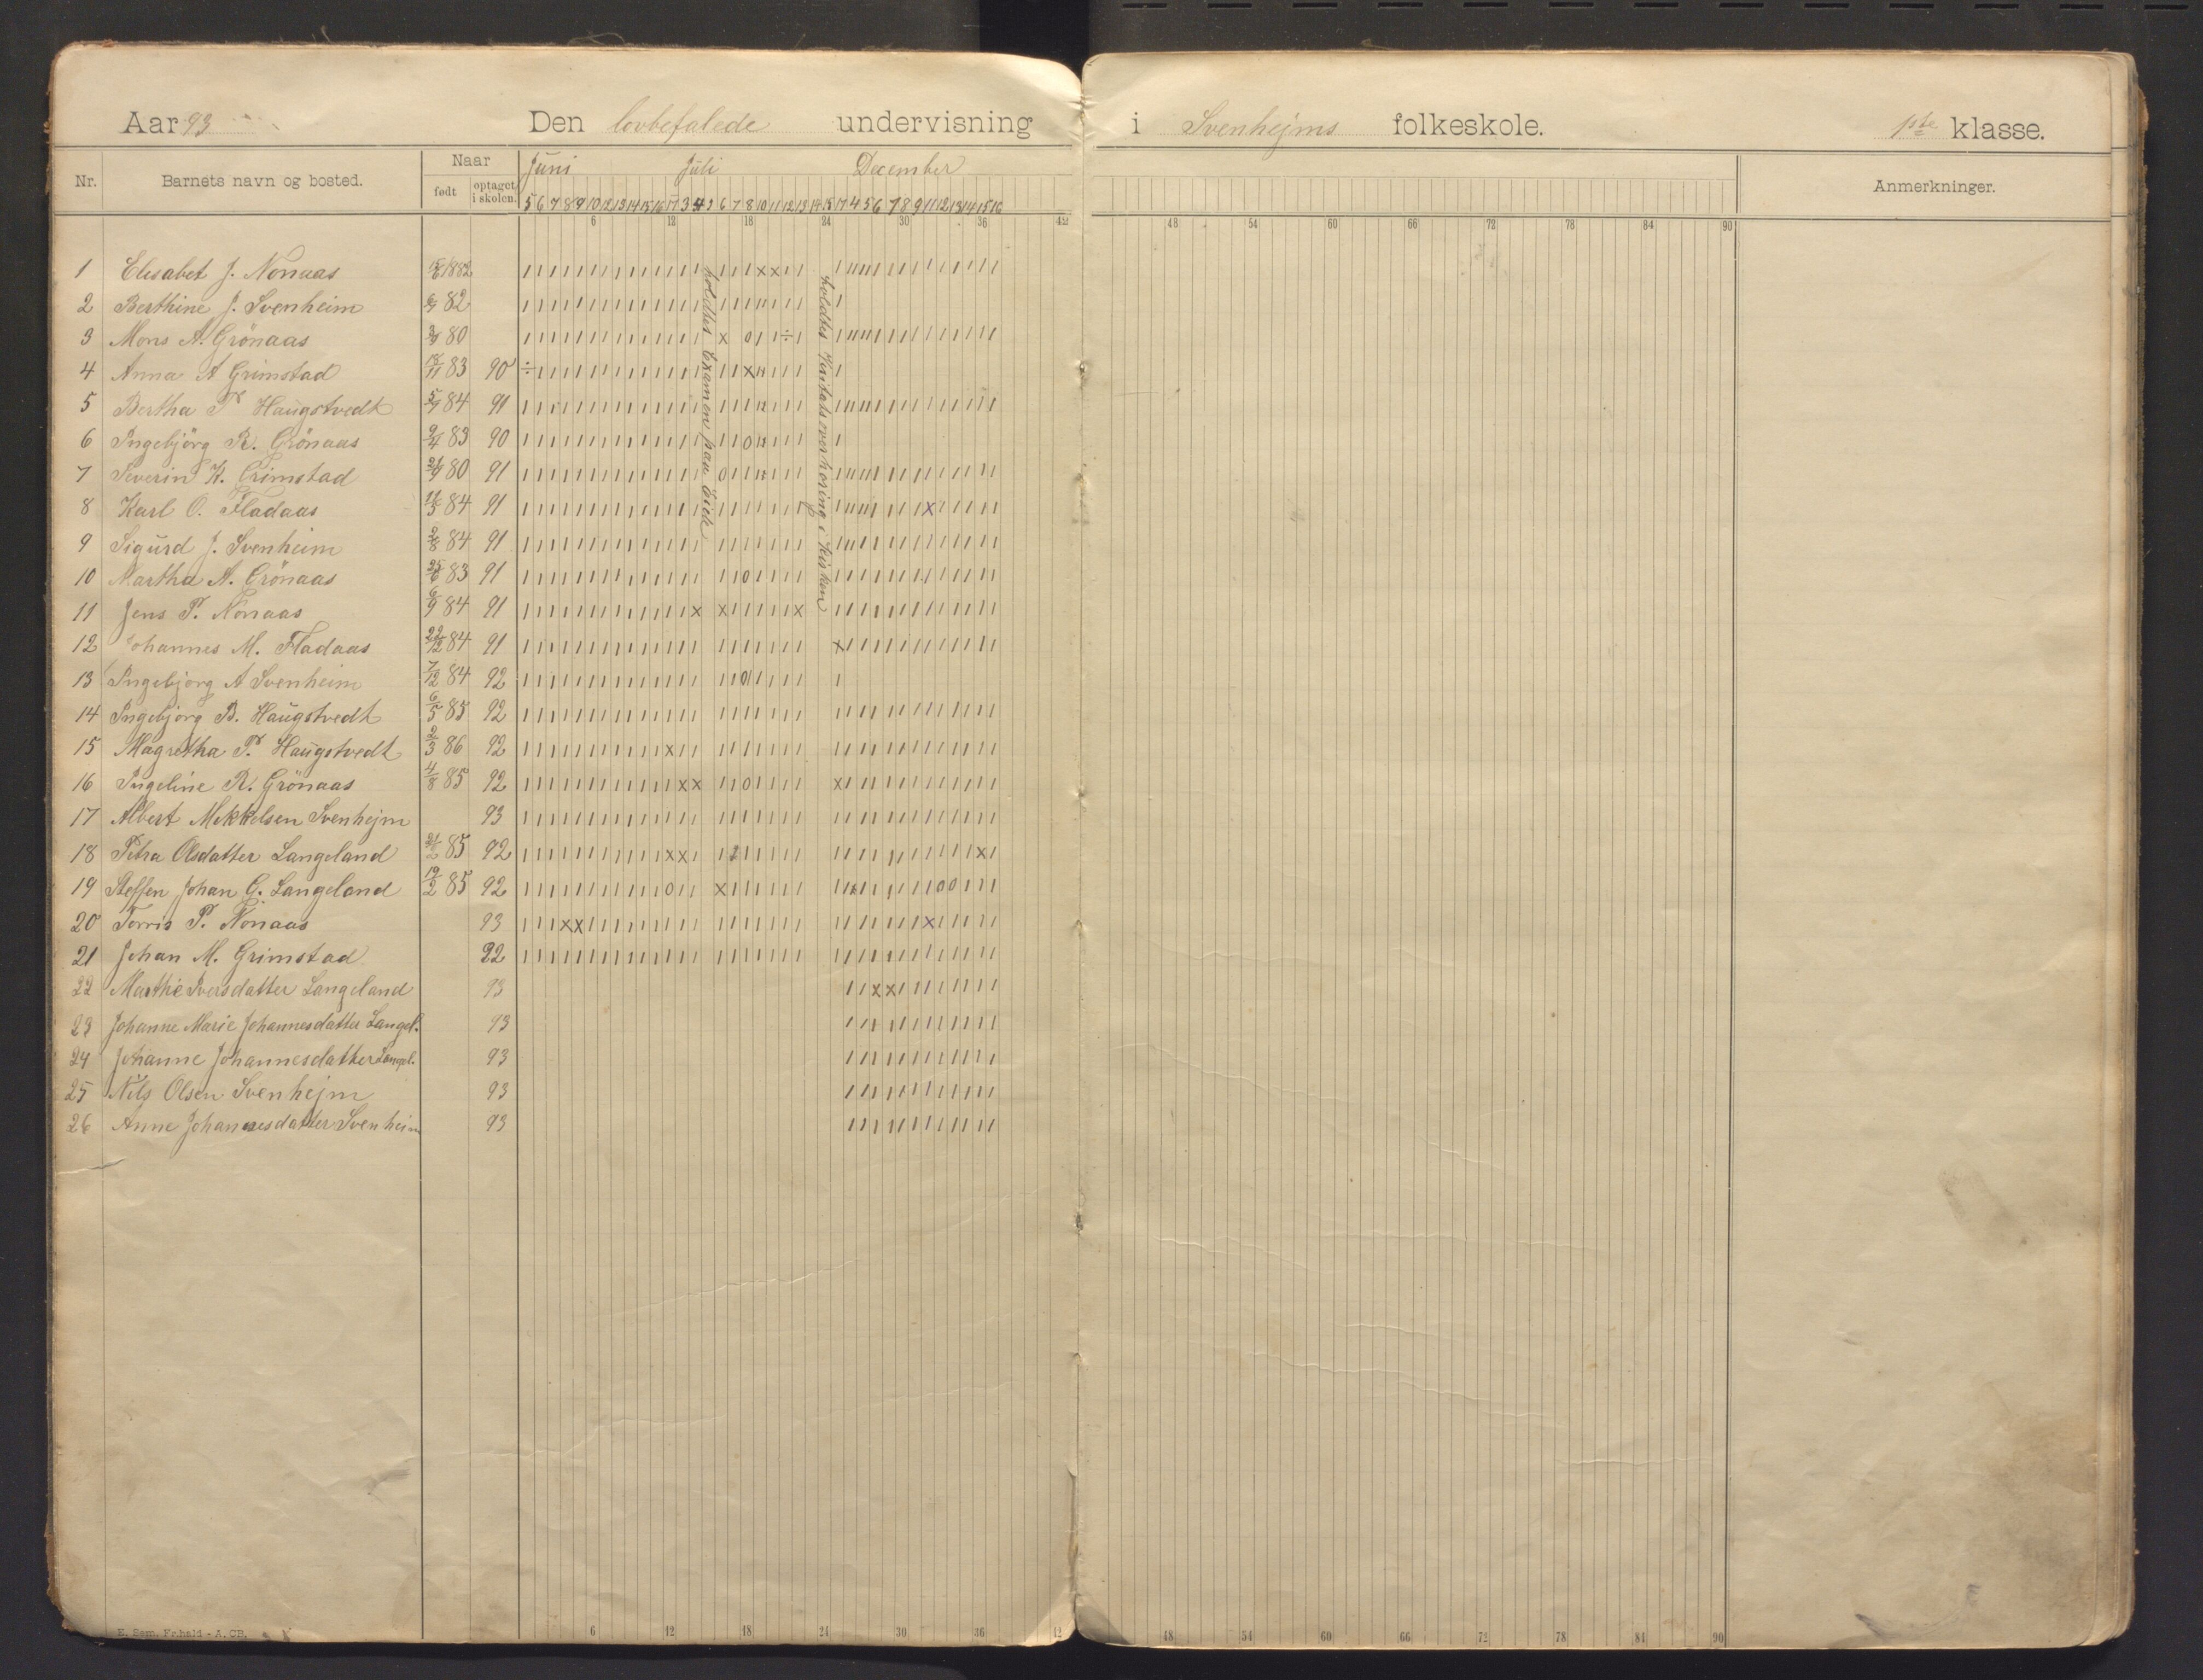 Aar 93 Den lovbefalede undervisning i Svenhejms folkeskole. 1ste klasse.
Nr. Barnets navn og bosted. Naar født optaget i skolen. Juni Juli December Anmerkninger.
5 6 7 8 9 10 12 13 14 15 16 17 3 4 5 6 7 8 10 11 12 13 14 15 17 4 5 6 7 8 9 11 12 13 14 15 16
6 12 18 24 30 36 42 48 54 60 66 72 78 84 90
1 Elisabet J. Nonaas 1882
2 Berthine J. Svenheim 82
3 Mons A. Grönaas 80
4 Anna A Grimstad 18/11 83 90
5 Bertha P Haugstvedt 84 91
6 Ingebjörg R. Grönaas 83 90
7 Severin K. Grimstad 80 91
8 Karl O. Fladaas 84 91
9 Sigurd J. Svenheim 2/8 84 91
10 Martha A. Grönaas 83 91
11 Jens P. Nonaas 6/9 84 91
12 Johannes M. Fladaas 22/12 84 91
13 Ingebjörg A Svenheim 7/12 84 92
14 Ingebjörg B. Haugstvedt 6/5 85 92
15 Magretha P. Haugstvedt 2/3 86 92
16 Ingeline R. Grönaas 4/8 85 92
17 Albert Mekkelsen Svenhejm 93
18 Petra Olsdatter Langeland 21/2 85 92
19 Steffen Johan G. Langeland 19/2 85 92
20 Torris P. Nonaas 93
21 Johan M. Grimstad 92
22 Marthe Iversdatter Langeland 93
23 Johanne Marie Johannesdatter Langel. 93
24 Johanne Johannesdatter Langel. 93
25 Nils Olsen Svenhejm 93
26 Anne Johannesdatter Svenheim 93
holdtes Examen paa Eide
holdtes Visitatsoverhøring i Kirken
E. Sem. Fr.hald - A. CB.
6 12 18 24 30 36 42 48 54 60 66 72 78 84 90